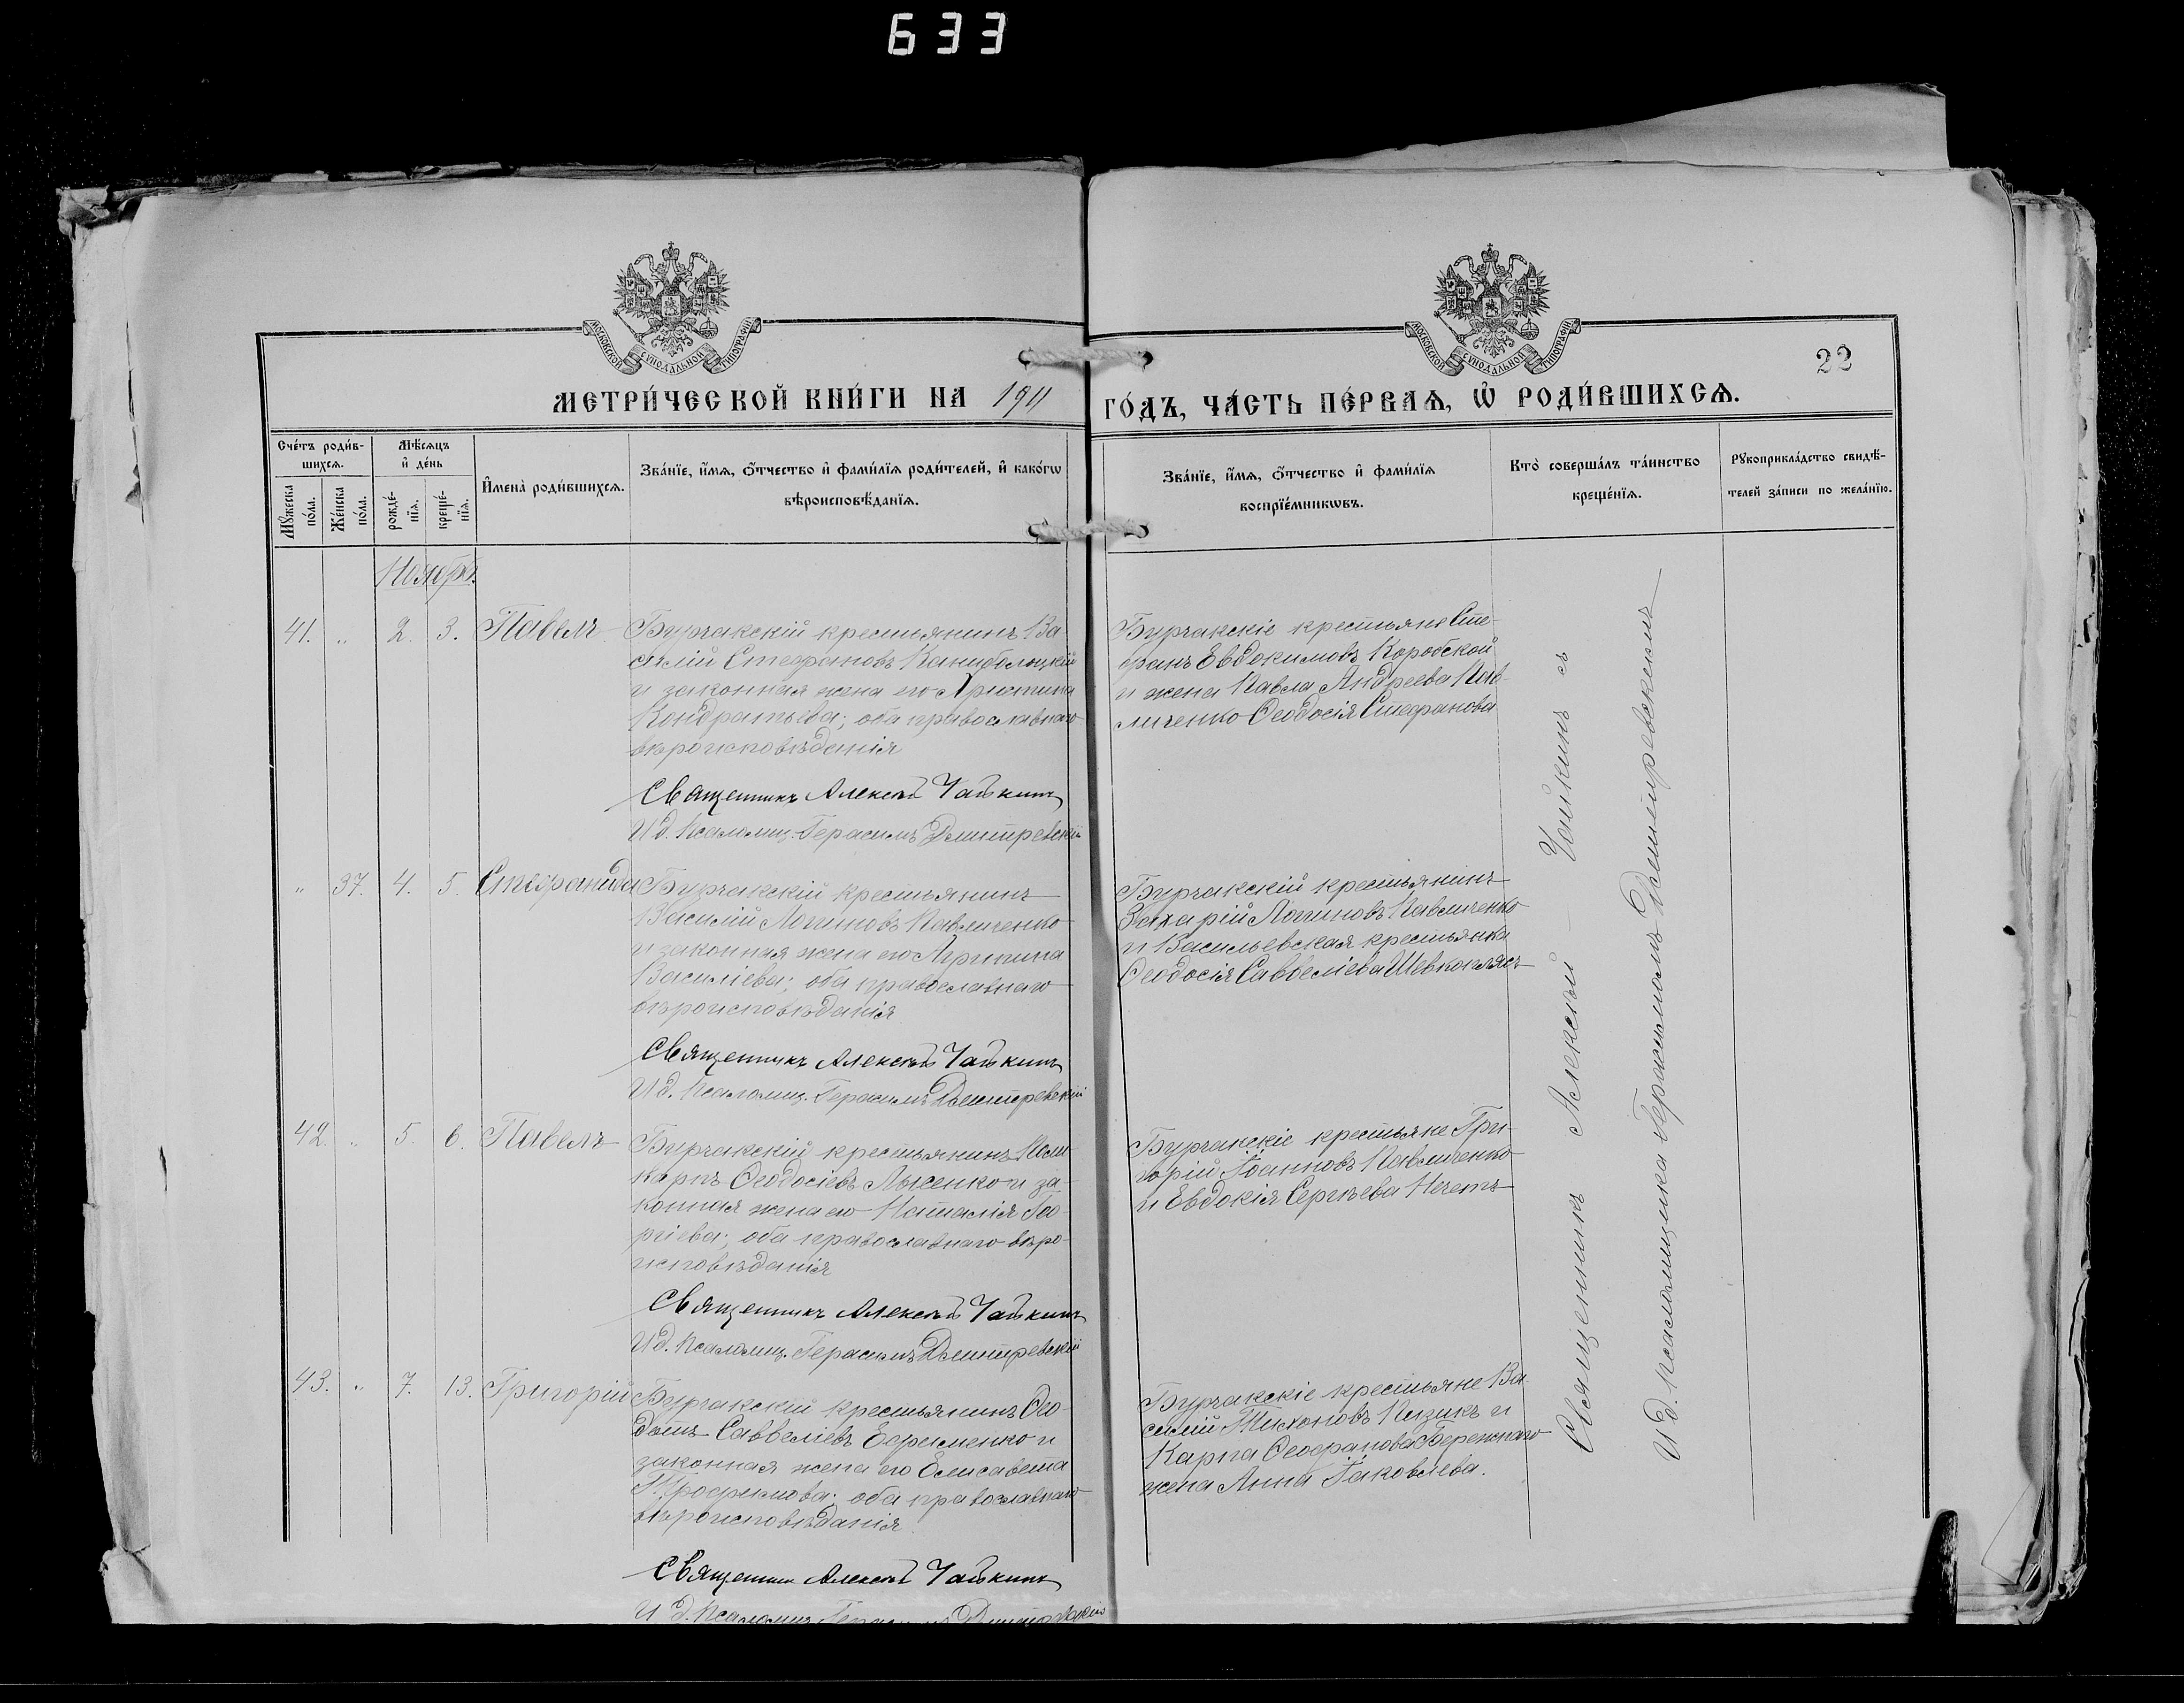 633
МОСКОВСКОЙ СѴНОДАЛЬНОЙ ТИПОГРАФІИ
МОСКОВСКОЙ СѴНОДАЛЬНОЙ ТИПОГРАФІИ
22
МЕТРИ́ЧЕСКОЙ КНИ́ГИ НА 1911 ГО́ДЪ, ЧА́СТЬ ПЕ́РВАѦ, Ѡ РОДИ́ВШИХСѦ.
Сче́тъ роди́в-
шихсѧ.
Мꙋ́жеска по́ла.
Же́нска по́ла.
Мѣ́сѧцъ
и҆ де́нь
рожде́-
нїѧ.
креще́-
нїѧ.
И҆мена̀ роди́вшихсѧ.
Зва́нїе, и҆́мѧ, ѻ҆́тчество и҆ фами́лїѧ роди́телей, и҆ како́гѡ
вѣроисповѣ́данїѧ.
Зва́нїе, и҆́мѧ, ѻ҆́тчество и҆ фами́лїѧ
воспрїе́мникѡвъ.
Кто̀ соверша́лъ та́инство
креще́нїѧ.
Рꙋкоприкла́дство свидѣ́-
телей за́писи по жела́нїю.
Ноябрь.
41. „ 2. 3. Павелъ
Бурчакскій крестьянинъ Ва-
силій Стефановъ
и законная жена его Христина
Кондратьева; оба православнаго
вѣроисповѣданія
Священникъ Алексѣй Чайкинъ
И д. Псаломщ. Герасимъ Дмитревскій
Бурчакскіе крестьяне Сте-
фанъ Евдокимовъ Коробской
и жена Павла Андреева Пав-
личенко Ѳеодосія Стефанова
„ 37. 4. 5. Стефанида
Бурчакскій крестьянинъ
Василій Логиновъ Павличенко
и законная жена его Агрипина
Василіева; оба православнаго
вѣроисповѣданія
Священникъ Алексѣй Чайкинъ
И д. Псаломщ. Герасимъ Дмитревскій
Бурчакскій крестьянинъ
Захарій Логиновъ Павличенко
и Васильевская крестьянка
Ѳеодосія Саввеліева Шевкоплясъ
42. „ 5. 6. Павелъ
Бурчакскій крестьянинъ Поли-
карпъ Ѳеодосіевъ Лысенко и за-
конная жена его Наталія Гео-
ргіева; оба православнаго вѣро-
исповѣданія
Священникъ Алексѣй Чайкинъ
И д. Псаломщ. Герасимъ Дмитревскій
Бурчакскіе крестьяне Гри-
горій Іоанновъ Павличенко
и Евдокія Сергѣева Нечетъ
43. „ 7. 13. Григорій
Бурчакскій крестьянинъ Ѳео-
дотъ Саввеліевъ Ефименко и
законная жена его Елисавета
Трофимова; оба православнаго
вѣроисповѣданія
Священникъ Алексѣй Чайкинъ
И д. Псаломщ. Герасимъ Дмитревскій
Бурчакскіе крестьяне Ва-
силій Тихоновъ Пизикъ и
Карпа Ѳеофанова Бережнаго
жена Анна Іаковлева.
Священникъ Алексѣй Чайкинъ съ
И д. Псаломщика Герасимомъ Дмитревскимъ